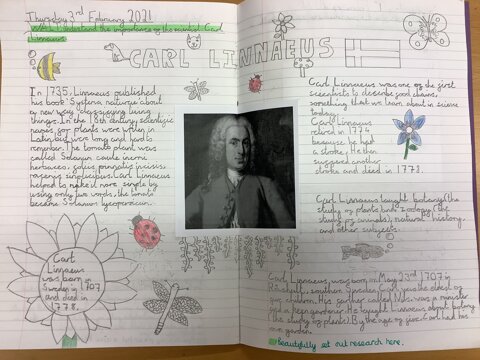 Thursday 3rd February 2021
WALT: Understand the importance of the scientist Carl
Linnaeus
CARL LINNAEUS
In 1735, Linnaeus published
his book Systema naturae about
a new way of classifying living
things. In the 18th century scientific
names for plants were written in
Latin but were long and hard to
remember. The tomato plant was
called Solanum caule inermi
herbaceo, foliis pinnatis incisis,
racemis simplicibus. Carl Linnaeus
helped to make it more simple by
using only two words, the tomato
became Solanum lycopersicum.
Carl
Linnaeus
was born in
Sweden in 1707
and died in
1778.
Carl Linnaeus was one of the first
scientists to describe food chains,
something that we learn about in science
today.
Carl Linnaeus
retired in 1774
because he had
a stroke. He then
suffered another
stroke and died in 1778.
Carl Linnaeus taught botany (the
study of plants) and zoology (the
study of animals), natural history,
and other subjects.
Carl Linnaeus, was born on May 23rd 1707 in
Råshult, southern Sweden. Carl was the eldest of
five children. His father called Nils, was a minister
and a keen gardener. He taught Linnaeus about botany
(the study of plants). By the age of five, Carl had his
own garden.
beautifully set out research here.